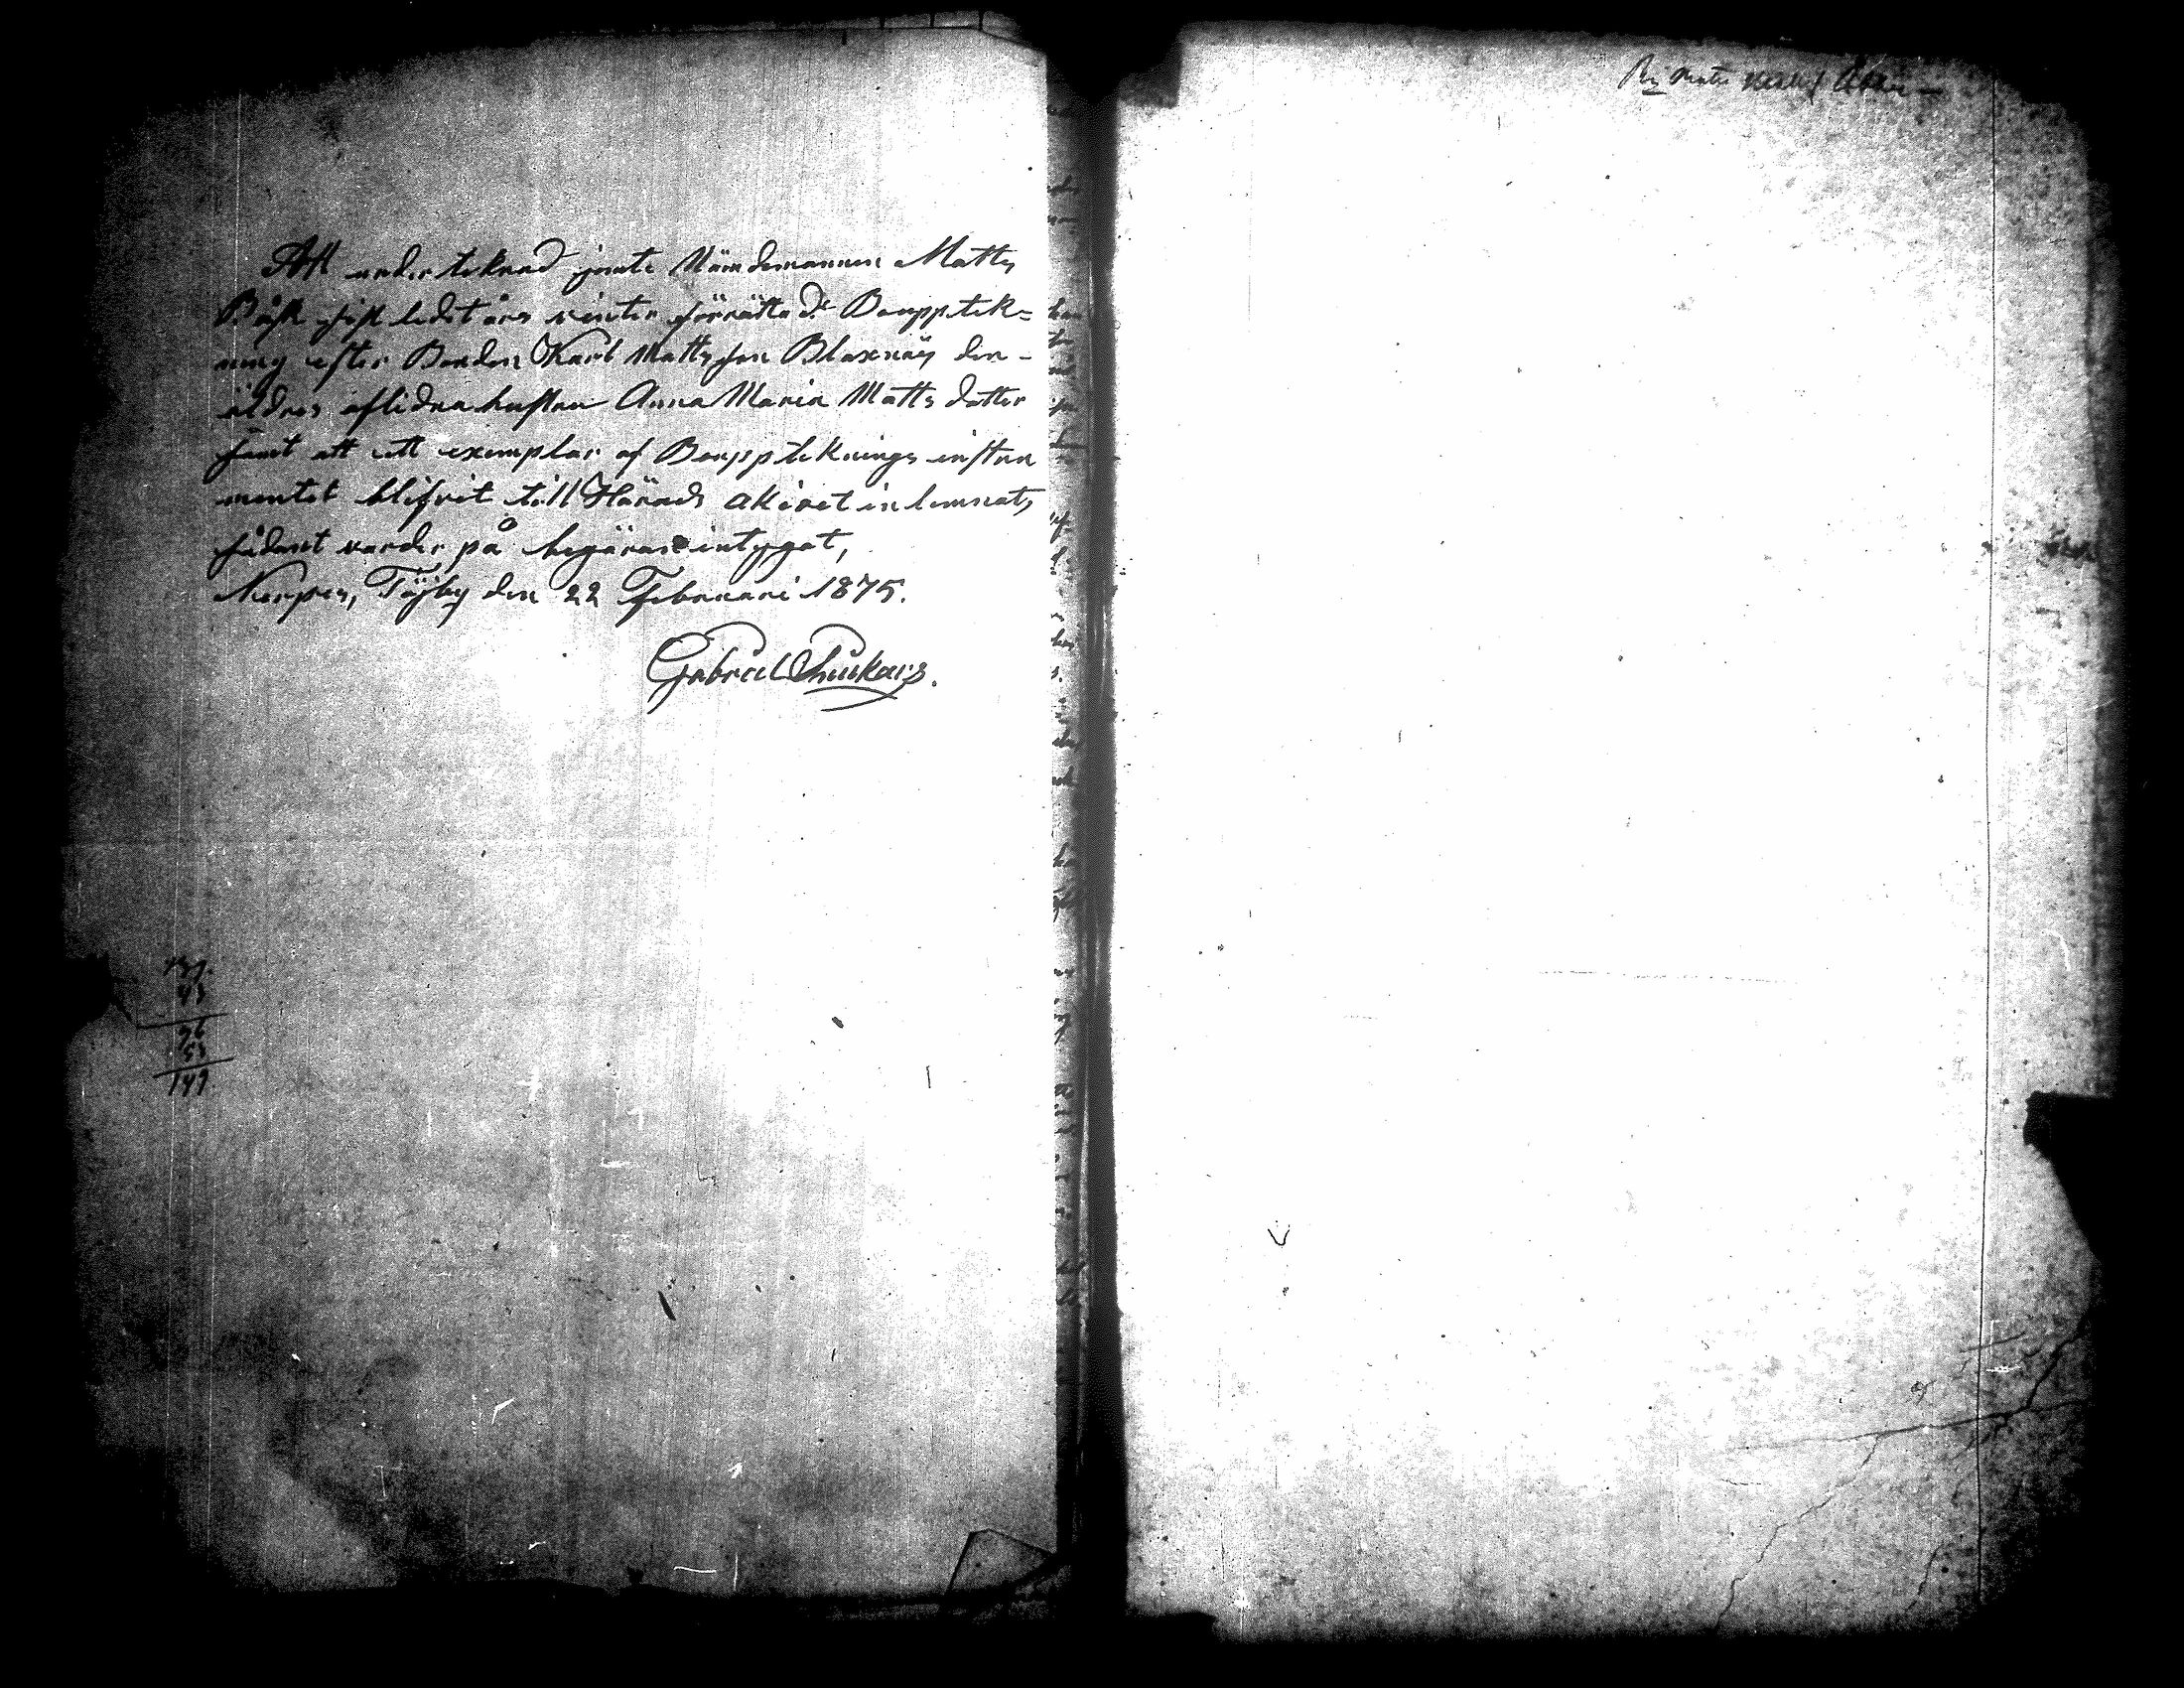 Att undertecknad jemte Nämdemannen Matts
Båsk sistledet års vinter förrättade Boupptek=
ning efter Bonden Karl Mattsson Blaxnäs den-
äldres aflidna hustru Anna Maria Matts dotter
samt att ett exemplar af Boupptekningsinstru
mentet blifvit till Härads akivet inlemnats,
sådant varder på begäran intygat,
Nerpes, Töjby den 22 Februari 1875.
Gabriel
43
96
53
149